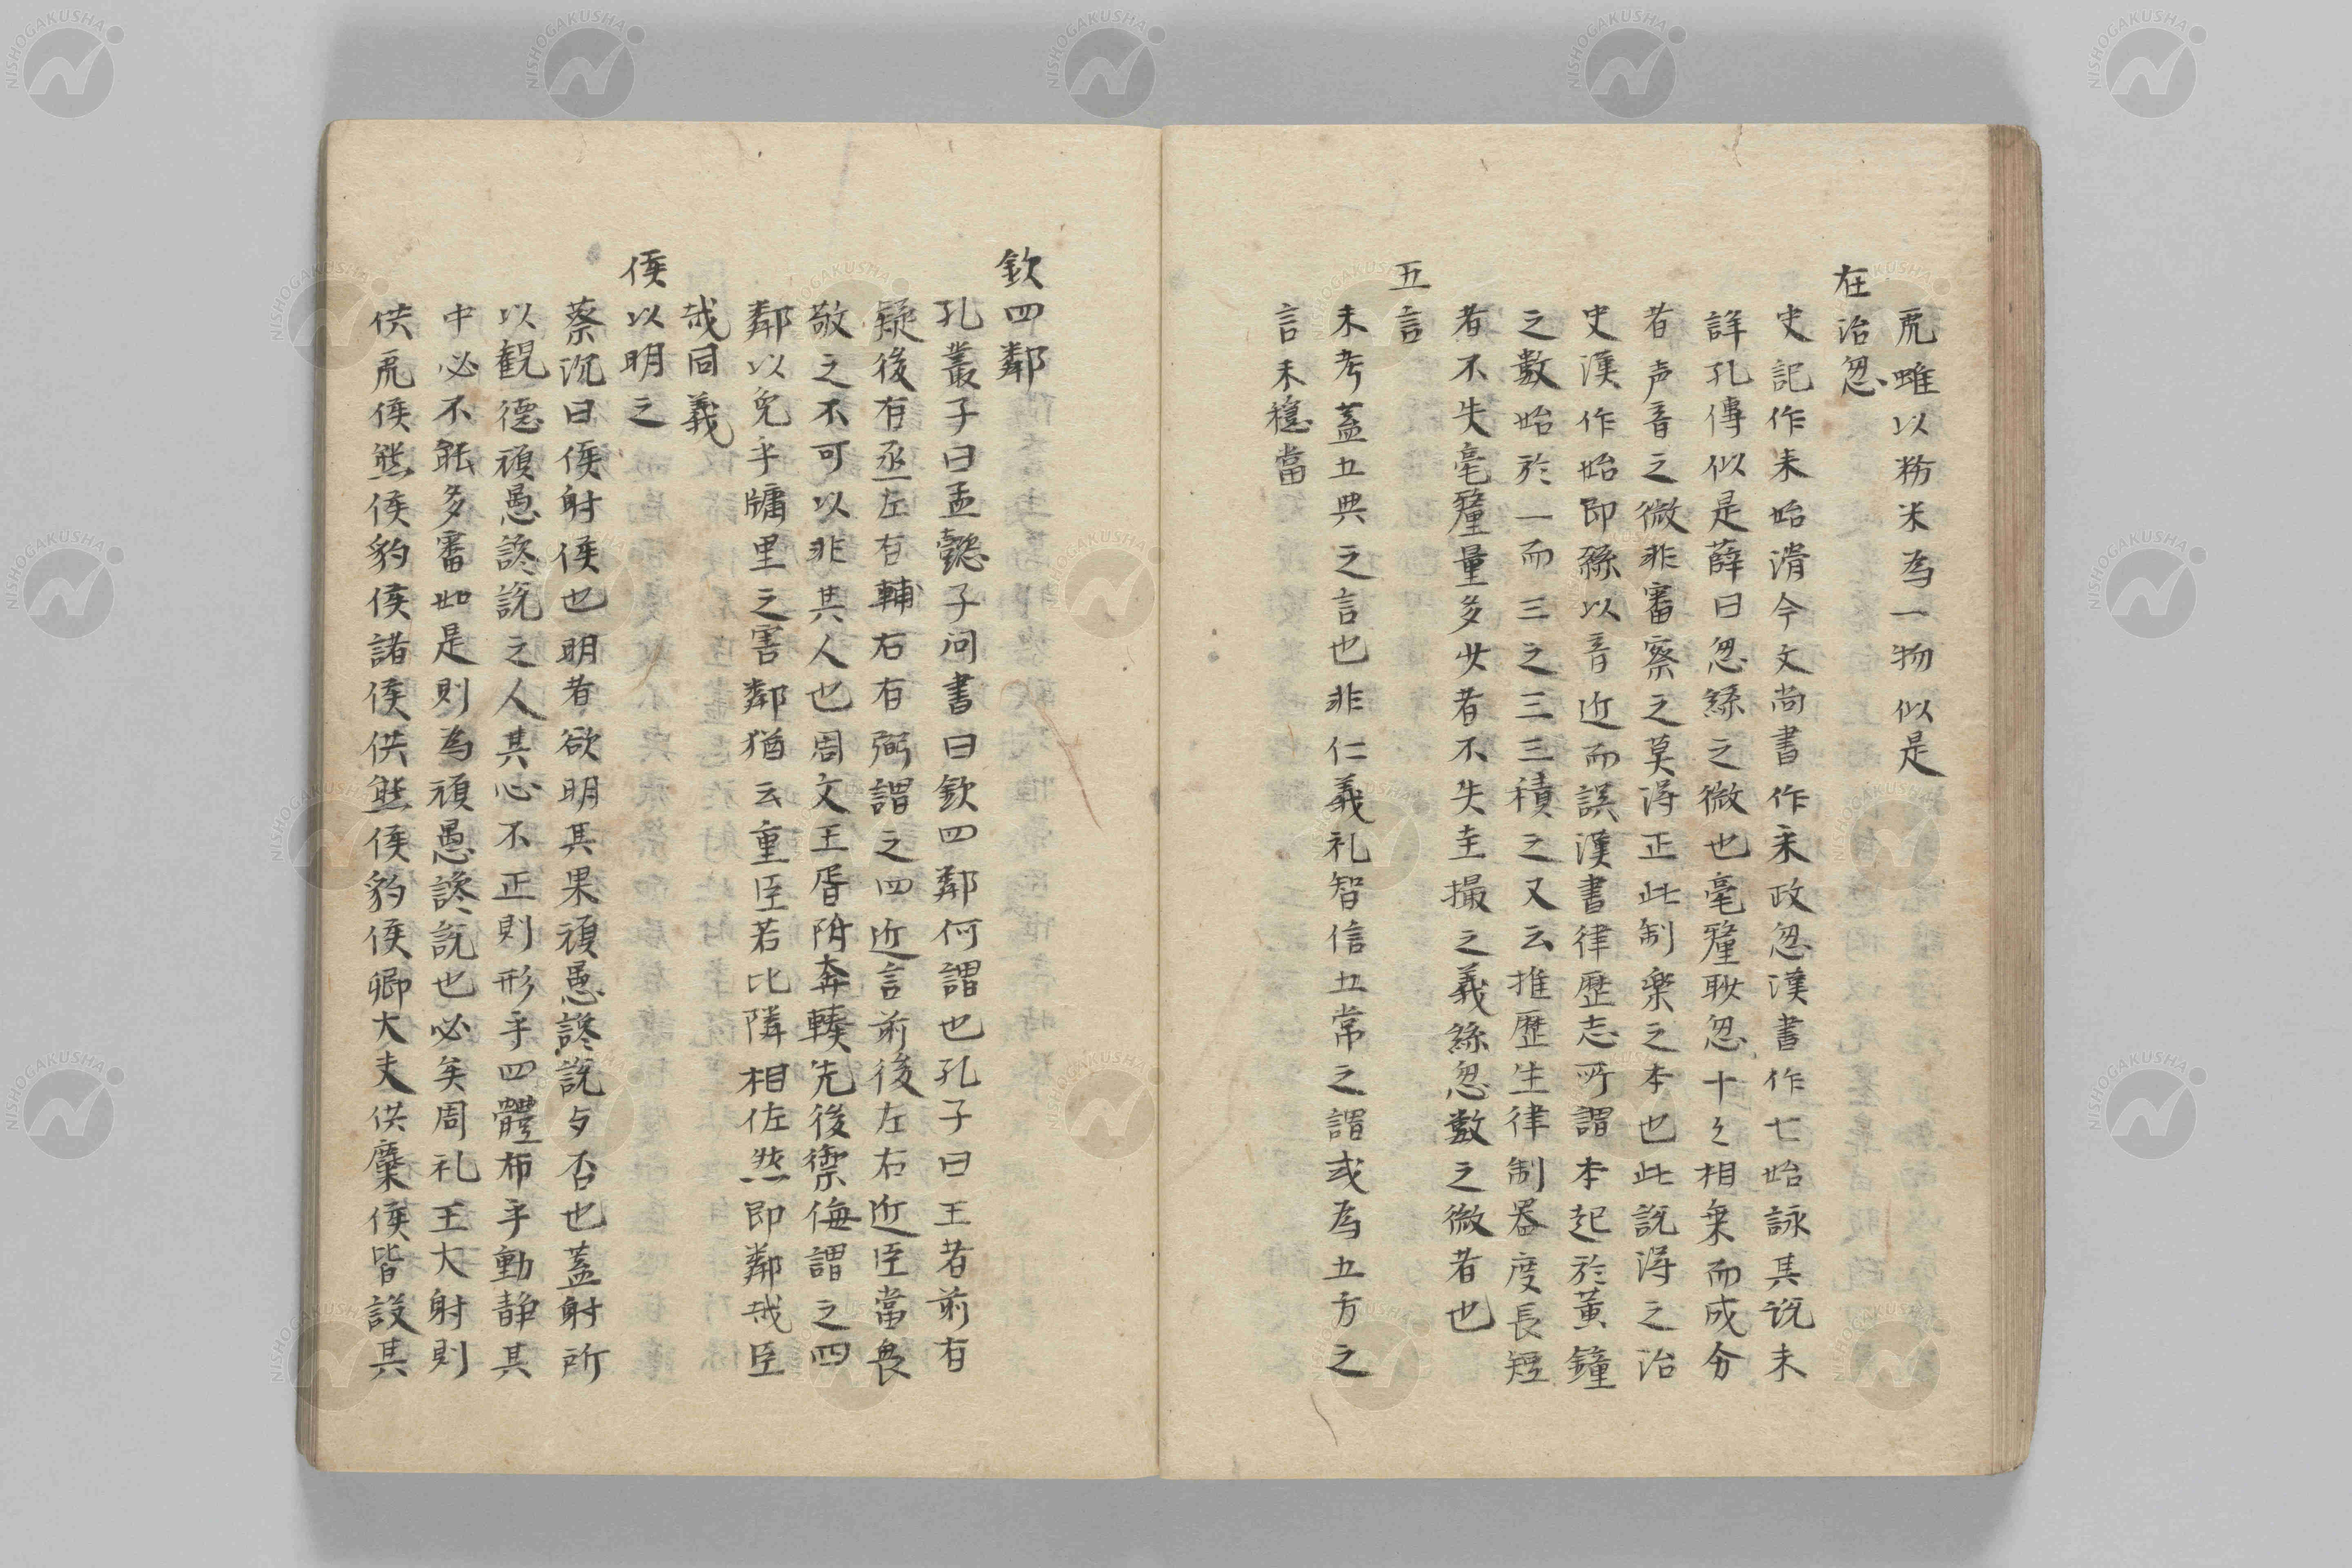 虎蜼以粉米為一物似是
在治忽
史記作来始滑今文尚書作采政忽漢書作七始詠其説未
詳孔傳似是薛曰忽絲之微也毫釐耿忽十之相乗而成分
者声音之微非審察之莫得正此制楽之本也此説得之治
史漢作始即絲以音近而誤漢書律歴志所謂本起於黄鐘
之數始於一而三之三三積之又云推歴生律制器度長短
者不失毫釐量多少者不失圭撮之義絲忽數之微者也
五言
未考蓋五典之言也非仁義礼智信五常之謂或為五方之
言未穏當
欽四鄰
孔叢子曰孟懿子问書曰欽四鄰何謂也孔子曰王者前有
疑後有丞左有輔右有弼謂之四近言前後左右近臣當畏
敬之不可以非其人也周文王胥附奔輳先後禦侮謂之四
鄰以免乎牖里之害鄰猶云重臣若比隣相佐然即鄰哉臣
哉同義
侯以明之
蔡沉曰侯射侯也明者欲明其果頑愚讒説与否也蓋射所
以観德頑愚讒説之人其心不正則形乎四體布乎動静其
中必不能多審如是則為頑愚讒説也必矣周礼王大射則
供虎侯熊侯豹侯諸侯供熊侯豹侯卿大夫供麋侯皆設其
NISHOGAKUSHA